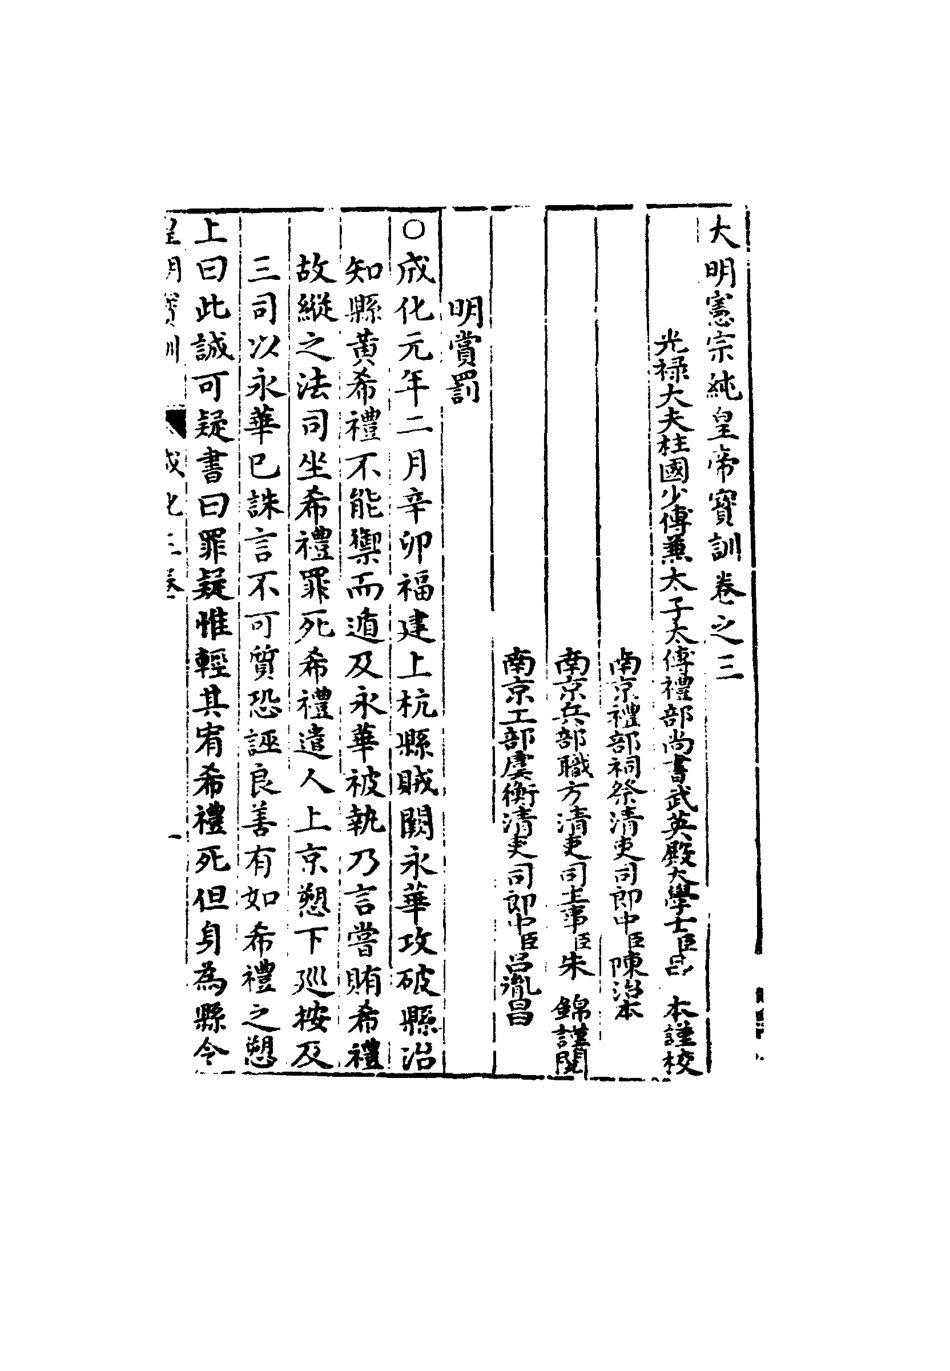 大明憲宗純皇帝寶訓卷之三
光祿大夫柱國少傅兼太子太傅禮部尚書武英殿大學士臣呂 本謹校
南京禮部祠祭清吏司郎中臣陳治本
南京兵部職方清吏司主事臣朱 錦謹閱
南京工部虞衡清吏司郎中臣呂胤昌
明賞罰
○成化元年二月辛卯福建上杭縣賊闕永華攻破縣治
知縣黃希禮不能禦而遁及永華被執乃言嘗賄希禮
故縱之法司坐希禮罪死希禮遣人上京愬下廵按及
三司以永華已誅言不可質恐誣良善有如希禮之愬
上曰此誠可疑書曰罪疑惟輕其宥希禮死但身為縣令
皇明寶訓 成化三卷 一